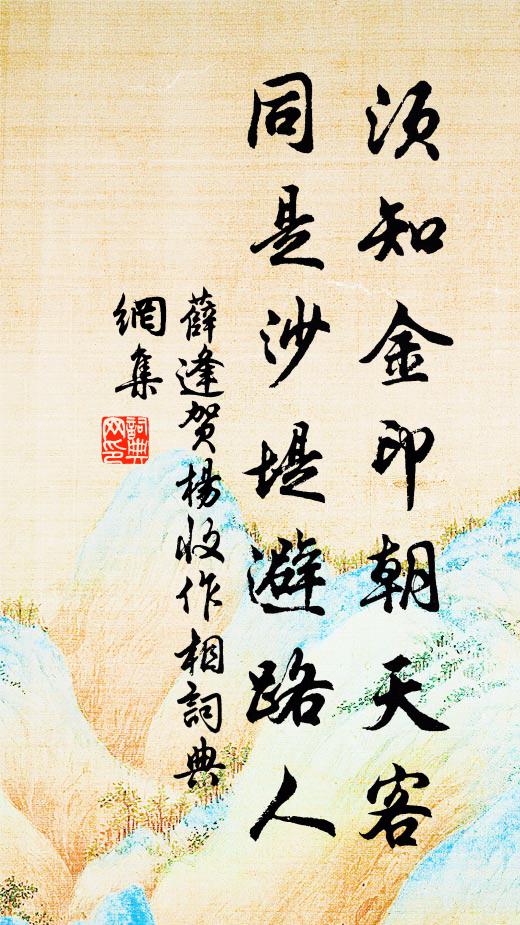 須知金印朝天客
同是沙堤避路人
薛逢賀楊收作相詞典
網集
詞典
网印